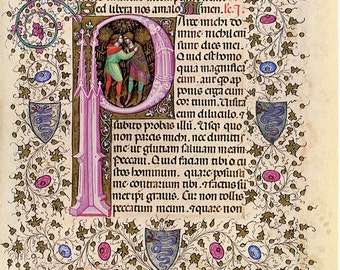 Sed libera nos amalo
P Arce michi do
mine nichil eni
sunt dies mei.
quia magnificas
eum. aut quid ap
ponis erga eum
cor tuum. Visitas
eum diluculo. et
subito probas illu. Usquequo
non parcis michi. nec dimittis
me ut glutiam saliuam meam.
Peccaui. Quid faciam tibi o
custos hominum. quare posuisti
me contrarium tibi. et factus sum
metipsi grauis. Cur non tollis
peccatum meum. et quare non